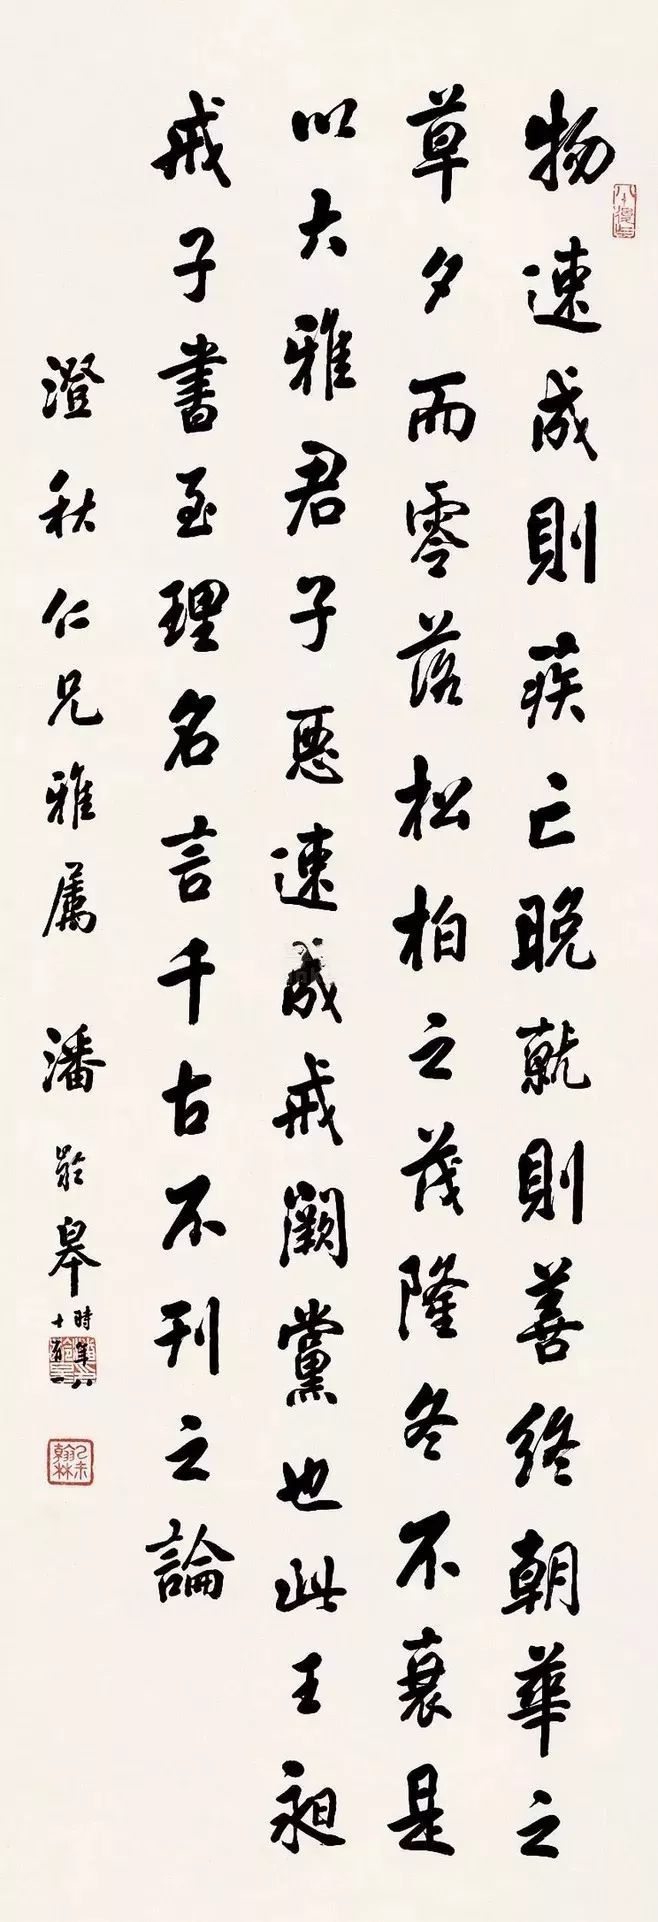 物速成則疾亡晚就則善終朝華之
草夕而零落松柏之茂隆冬不衰是
以大雅君子惡速成戒闕黨也此王昶
戒子書至理名言千古不刊之論
澄秋仁兄雅屬 潘齡皋
時年
十有八
己未翰林